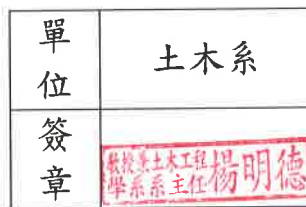 單位
土木系
簽章
教授兼土木工程
學系系主任
楊明德